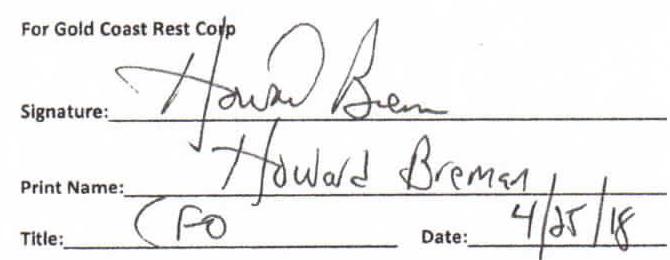 For Gold Coast Rest Corp
Signature: Howard Brem
Print Name: Howard Breman
Title: CFO Date: 4/25/18